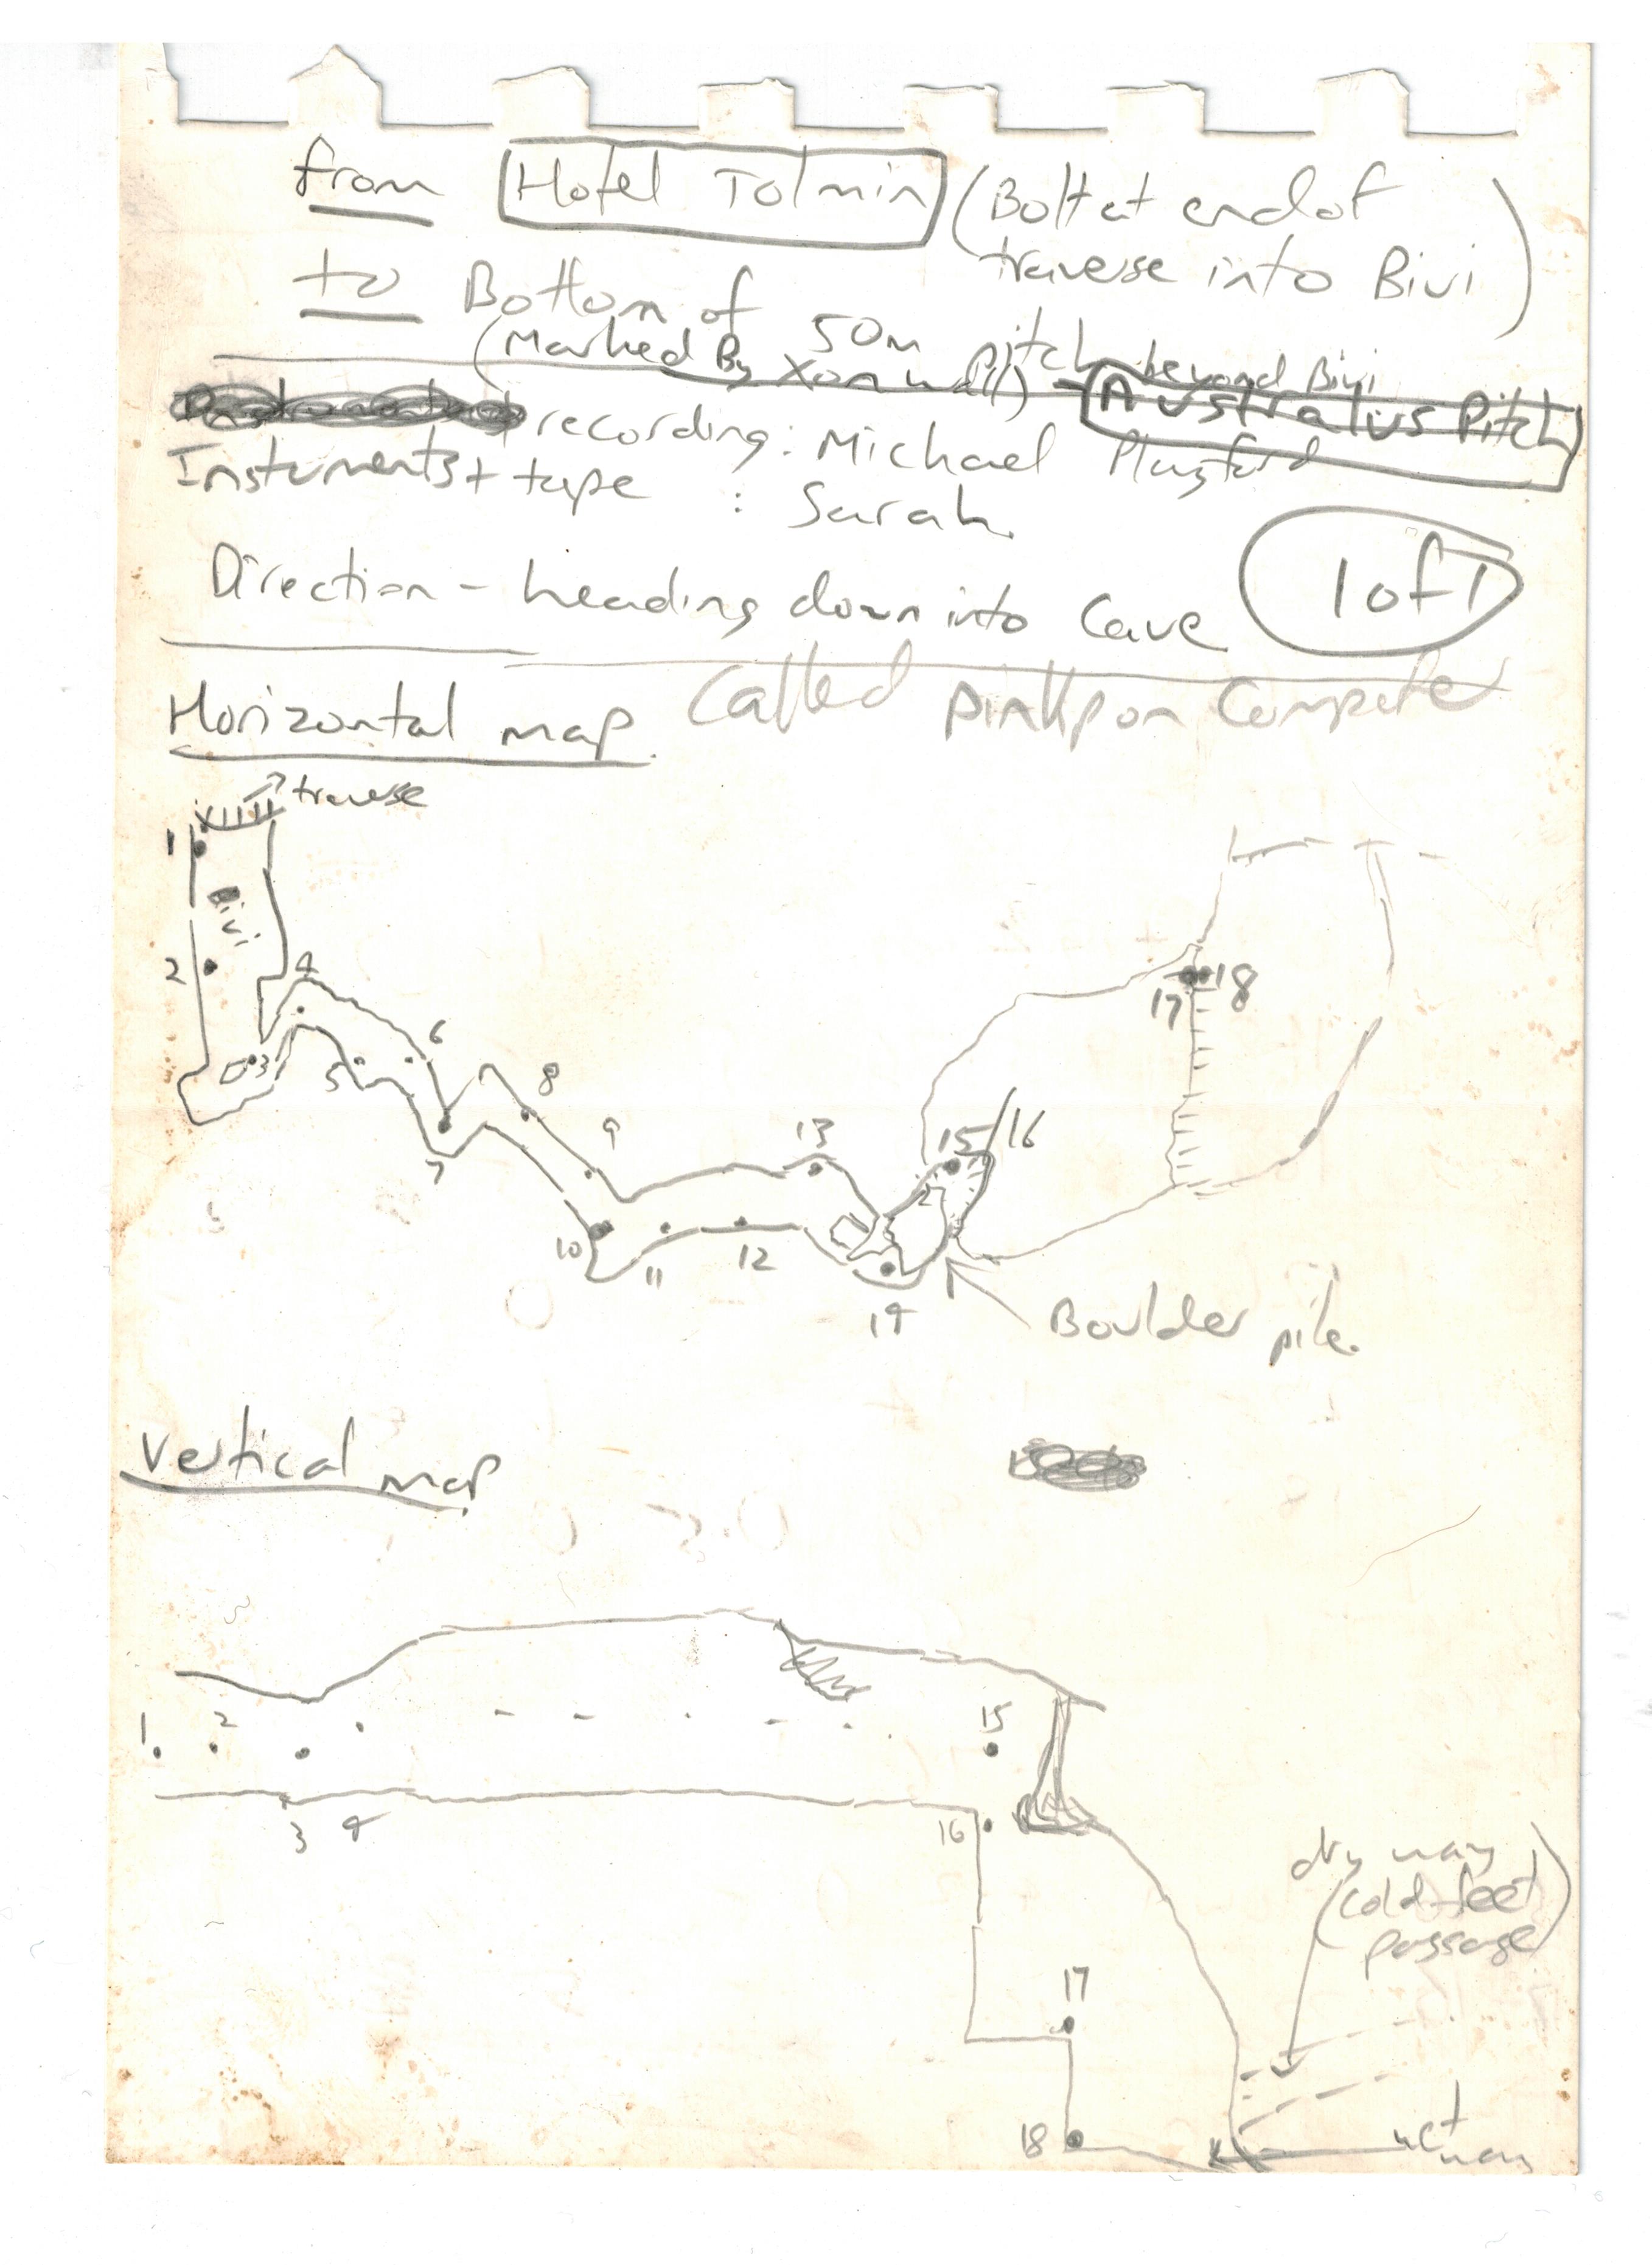 from Hotel Tolmin (Bolt at end of
traverse into Bivi)
to Bottom of 50m pitch beyond Bivi
(Marked By X on wall) - Australus Pitch
recording: Michael
Instuments + tape : Sarah
Direction - heading down into Cave
1 of 1
Horizontal map
Called on Computer
traverse
1
2
3
4
5
6
7
8
9
10
11
12
13
14
15/16
17
18
Boulder pile.
Vertical map
1
2
3
4
15
16
17
18
dry way
(cold-feet
passage)
wet
way